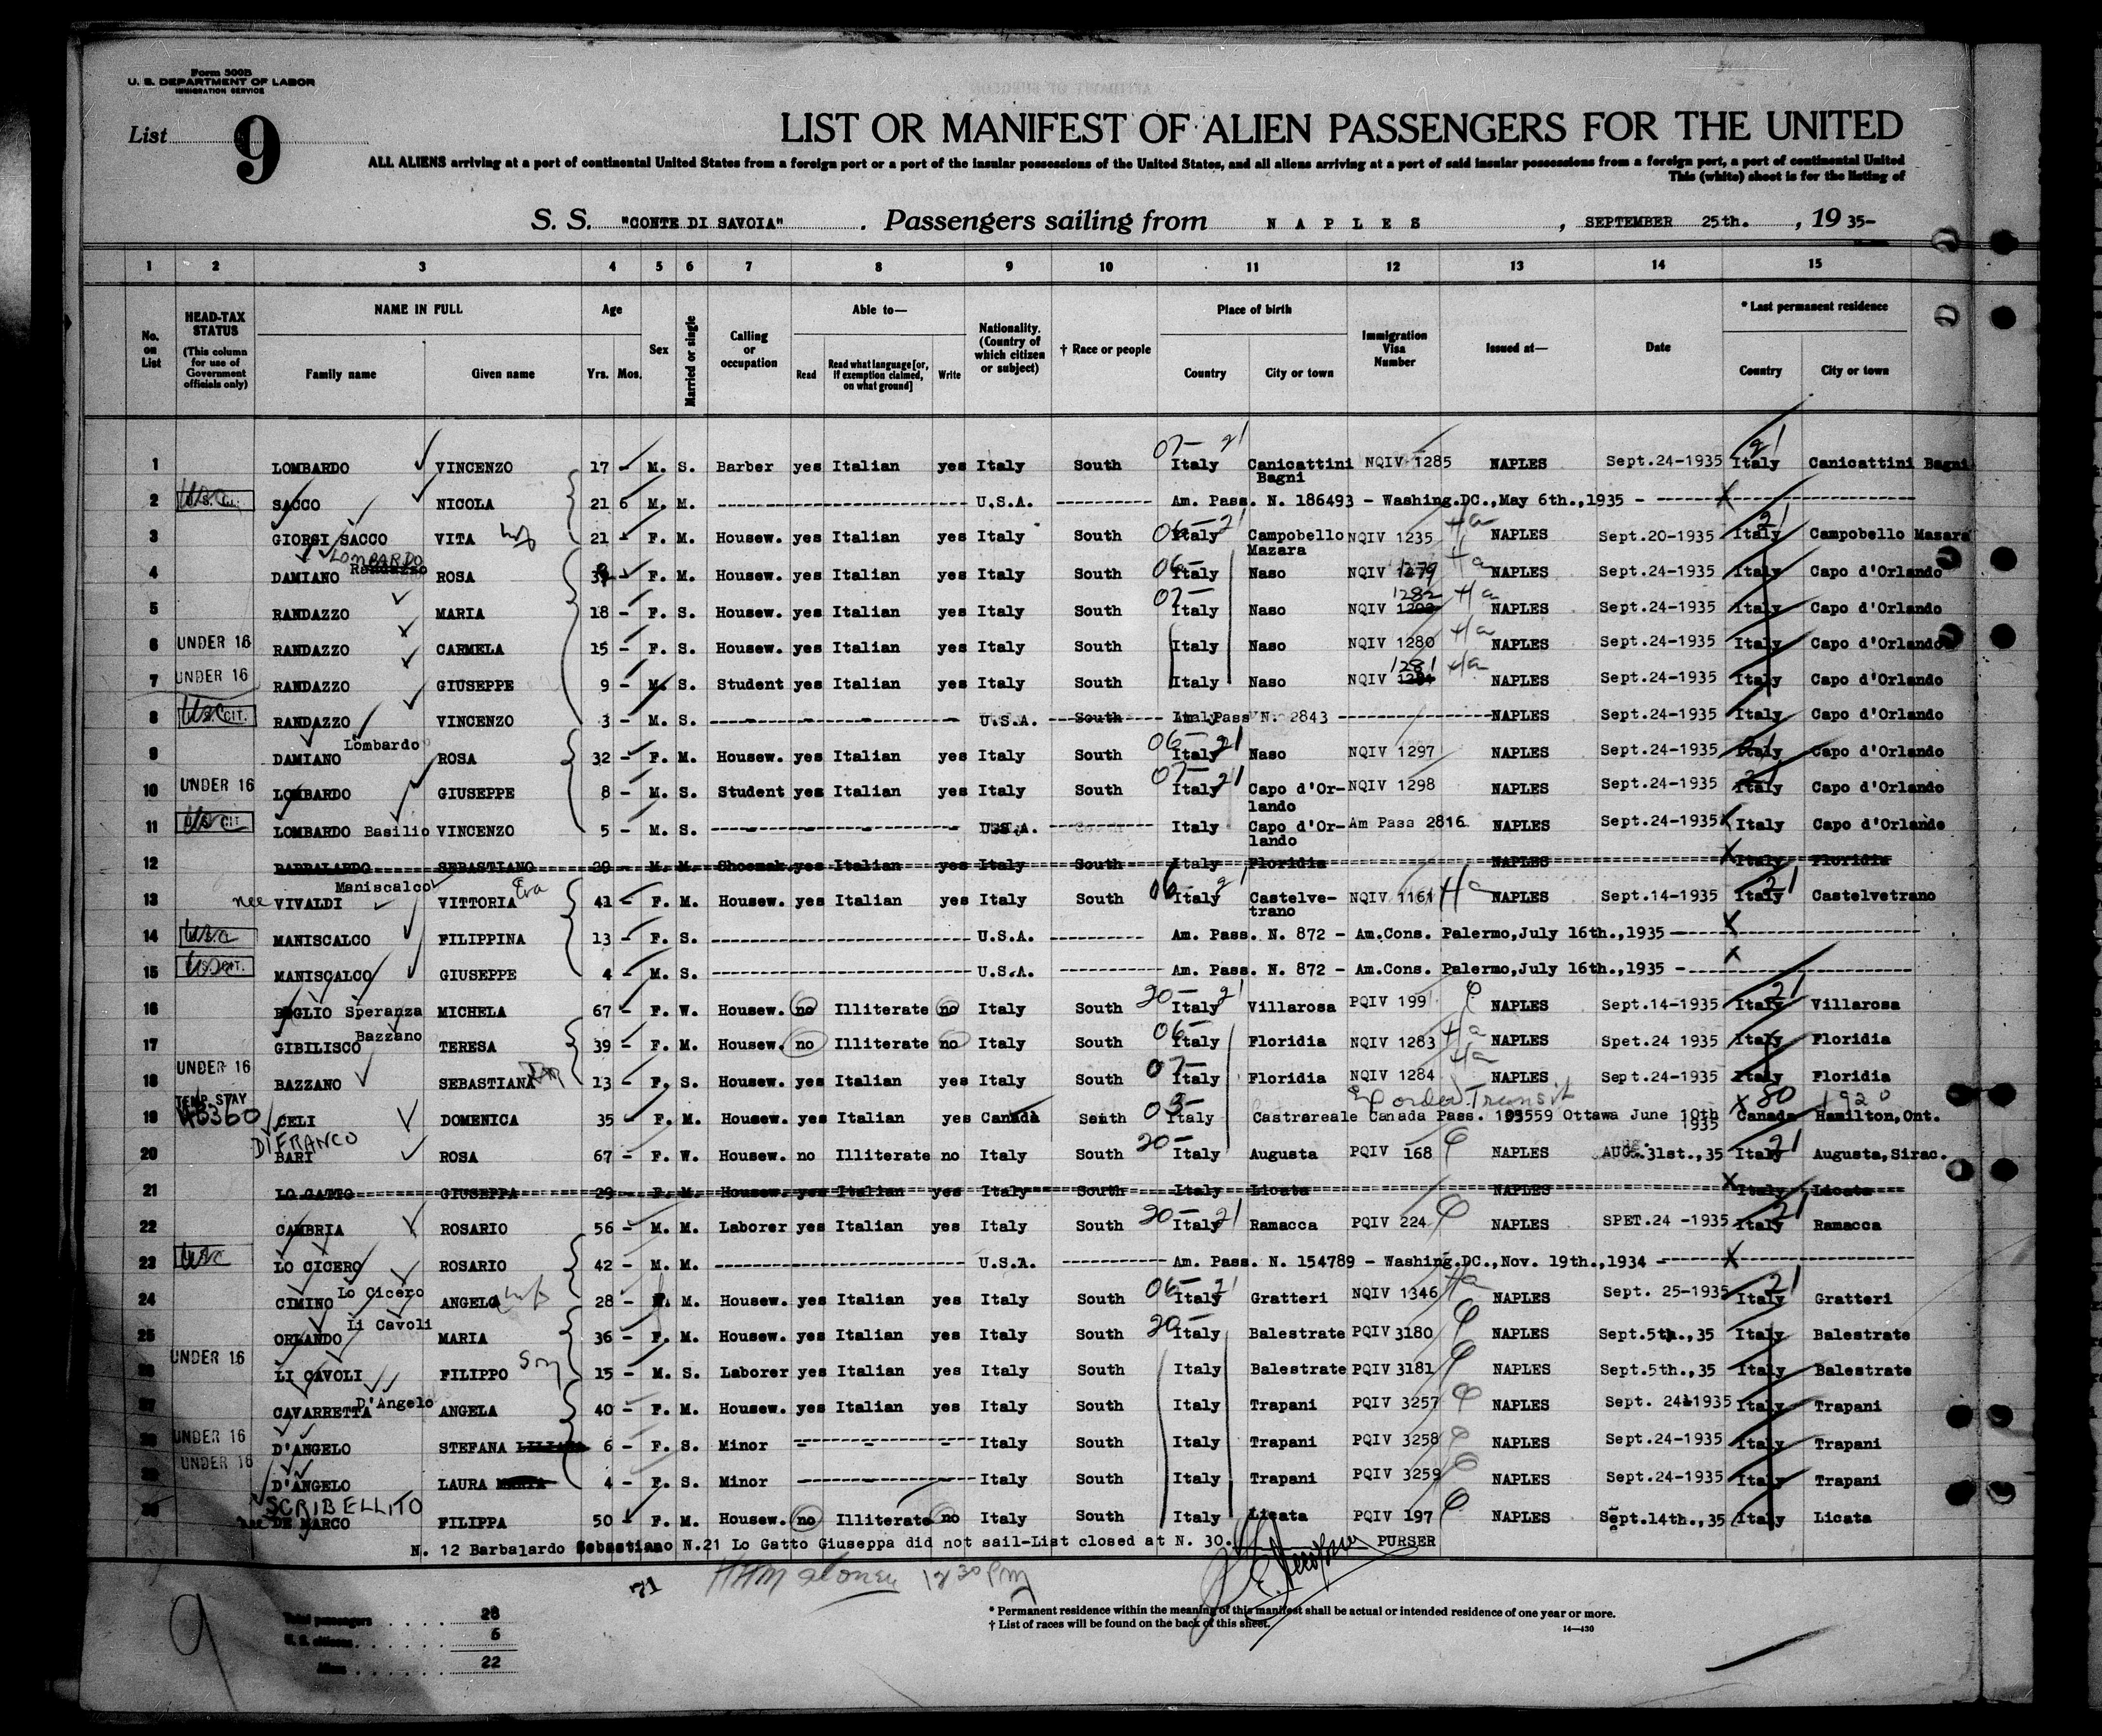 Form 500B
U. S. DEPARTMENT OF LABOR
IMMIGRATION SERVICE
List 9
LIST OR MANIFEST OF ALIEN PASSENGERS FOR THE UNITED
ALL ALIENS arriving at a port of continental United States from a foreign port or a port of the insular possessions of the United States, and all aliens arriving at a port of said insular possessions from a foreign port, a port of continental United
This (white) sheet is for the listing of
S. S. "CONTE DI SAVOIA" . Passengers sailing from N A P L E S , SEPTEMBER 25th. , 19 35-
1 2 3 4 5 6 7 8 9 10 11 12 13 14 15
No. on List HEAD-TAX STATUS (This column for use of Government officials only) NAME IN FULL Family name Given name Age Yrs. Mos. Sex Married or single Calling or occupation Able to— Read Read what language [or, if exemption claimed, on what ground] Write Nationality. (Country of which citizen or subject) † Race or people Place of birth Country City or town Immigration Visa Number Issued at— Date * Last permanent residence Country City or town
1 LOMBARDO VINCENZO 17 - M. S. Barber yes Italian yes Italy South 07- 21 Italy Canicattini Bagni NQIV 1285 NAPLES Sept.24-1935 21 Italy Canicattini Bagni
2 USC SACCO NICOLA 21 6 M. M. U.S.A. Am. Pass. N. 186493 - Washing.DC.,May 6th.,1935 - X
3 GIORGI SACCO VITA 21 - F. M. Housew. yes Italian yes Italy South 06- 21 Italy Campobello Mazara NQIV 1235 NAPLES Sept.20-1935 21 Italy Campobello Mazara
4 DAMIANO LOMBARDO Randazzo ROSA F. M. Housew. yes Italian yes Italy South 06- Italy Naso NQIV 1279 NAPLES Sept.24-1935 Italy Capo d'Orlando
5 RANDAZZO MARIA 18 - F. S. Housew. yes Italian yes Italy South 07- Italy Naso NQIV 1282 NAPLES Sept.24-1935 Italy Capo d'Orlando
6 UNDER 16 RANDAZZO CARMELA 15 - F. S. Housew. yes Italian yes Italy South Italy Naso NQIV 1280 NAPLES Sept.24-1935 Italy Capo d'Orlando
7 UNDER 16 RANDAZZO GIUSEPPE 9 - M. S. Student yes Italian yes Italy South Italy Naso NQIV 1281 NAPLES Sept.24-1935 Italy Capo d'Orlando
8 USC CIT. RANDAZZO VINCENZO 3 - M. S. U.S.A. South Pass N. 2843 NAPLES Sept.24-1935 Italy Capo d'Orlando
9 DAMIANO Lombardo ROSA 32 - F. M. Housew. yes Italian yes Italy South 06- 21 Italy Naso NQIV 1297 NAPLES Sept.24-1935 21 Italy Capo d'Orlando
10 UNDER 16 LOMBARDO GIUSEPPE 8 - M. S. Student yes Italian yes Italy South 07- 21 Italy Capo d'Or-lando NQIV 1298 NAPLES Sept.24-1935 21 Italy Capo d'Orlando
11 LOMBARDO Basilio VINCENZO 5 - M. S. U.S.A. Italy Capo d'Or-lando Am Pass 2816 NAPLES Sept.24-1935 Italy Capo d'Orlando
12 BARBALARDO SEBASTIANO 29 M. M. Shoemak yes Italian yes Italy South Italy Floridia NAPLES X Italy Floridia
13 nee VIVALDI Maniscalco VITTORIA 41 - F. M. Housew. yes Italian yes Italy South 06 21 Italy Castelve-trano NQIV 1161 NAPLES Sept.14-1935 21 Italy Castelvetrano
14 USC MANISCALCO FILIPPINA 13 - F. S. U.S.A. Am. Pass. N. 872 - Am.Cons. Palermo,July 16th.,1935 X
15 MANISCALCO GIUSEPPE 4 - M. S. U.S.A. Am. Pass. N. 872 - Am.Cons. Palermo,July 16th.,1935 - X
16 Speranza MICHELA 67 - F. W. Housew. no Illiterate no Italy South 20- 21 Italy Villarosa PQIV 199 NAPLES Sept.14-1935 21 Italy Villarosa
17 GIBILISCO Bazzano TERESA 39 - F. M. Housew. no Illiterate no Italy South 06- Italy Floridia NQIV 1283 NAPLES Spet.24 1935 Italy Floridia
18 UNDER 16 BAZZANO SEBASTIANA 13 - F. S. Housew. yes Italian yes Italy South 07- Italy Floridia NQIV 1284 NAPLES Sept.24-1935 Italy Floridia
19 TEMP. STAY CELI DOMENICA 35 - F. M. Housew. yes Italian yes Canada South Italy Castroreale Canada Pass. Ottawa June 10th 1935 X 80 Canada 1920 Hamilton,Ont.
20 DI FRANCO BARI ROSA 67 - F. W. Housew. no Illiterate no Italy South 20- Italy Augusta PQIV 168 NAPLES AUG.31st.,35 21 Italy Augusta,Sirac.
21 LO GATTO GIUSEPPA 29 F. M. Housew. yes Italian yes Italy South Italy Licata NAPLES X Italy Licata
22 CAMBRIA ROSARIO 56 - M. M. Laborer yes Italian yes Italy South 20- 21 Italy Ramacca PQIV 224 NAPLES SPET.24 -1935 21 Italy Ramacca
23 USC LO CICERO ROSARIO 42 - M. M. U.S.A. Am. Pass. N. 154789 - Washing.DC.,Nov. 19th.,1934 - X
24 CIMINO Lo Cicero ANGELA 28 - M. Housew. yes Italian yes Italy South 06- 21 Italy Gratteri NQIV 1346 NAPLES Sept. 25-1935 21 Italy Gratteri
25 ORLANDO Li Cavoli MARIA 36 - F. M. Housew. yes Italian yes Italy South 20- Italy Balestrate PQIV 3180 NAPLES Sept.5th.,35 Italy Balestrate
26 UNDER 16 LI CAVOLI FILIPPO Son 15 - M. S. Laborer yes Italian yes Italy South Italy Balestrate PQIV 3181 NAPLES Sept.5th.,35 Italy Balestrate
27 CAVARRETTA D'Angelo ANGELA 40 - F. M. Housew. yes Italian yes Italy South Italy Trapani PQIV 3257 NAPLES Sept. 24-1935 Italy Trapani
28 UNDER 16 D'ANGELO STEFANA 6 - F. S. Minor Italy South Italy Trapani PQIV 3258 NAPLES Sept.24-1935 Italy Trapani
29 UNDER 16 D'ANGELO LAURA 4 - F. S. Minor Italy South Italy Trapani PQIV 3259 NAPLES Sept.24-1935 Italy Trapani
30 SCRIBELLITO nee DE MARCO FILIPPA 50 - F. M. Housew. no Illiterate no Italy South Italy Licata PQIV 197 NAPLES Sept.14th.,35 Italy Licata
N. 12 Barbalardo Sebastiano N.21 Lo Gatto Giuseppa did not sail-List closed at N. 30. PURSER
71 12 30 Pm
9
Total passengers 28
U. S. citizens 6
Aliens 22
* Permanent residence within the meaning of this manifest shall be actual or intended residence of one year or more.
† List of races will be found on the back of this sheet.
14—430